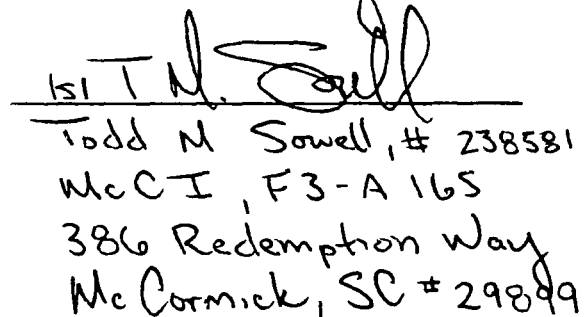 /s/ T M. Sowell
Todd M Sowell, # 238581
McCI, F3-A 165
386 Redemption Way
McCormick, SC # 29899